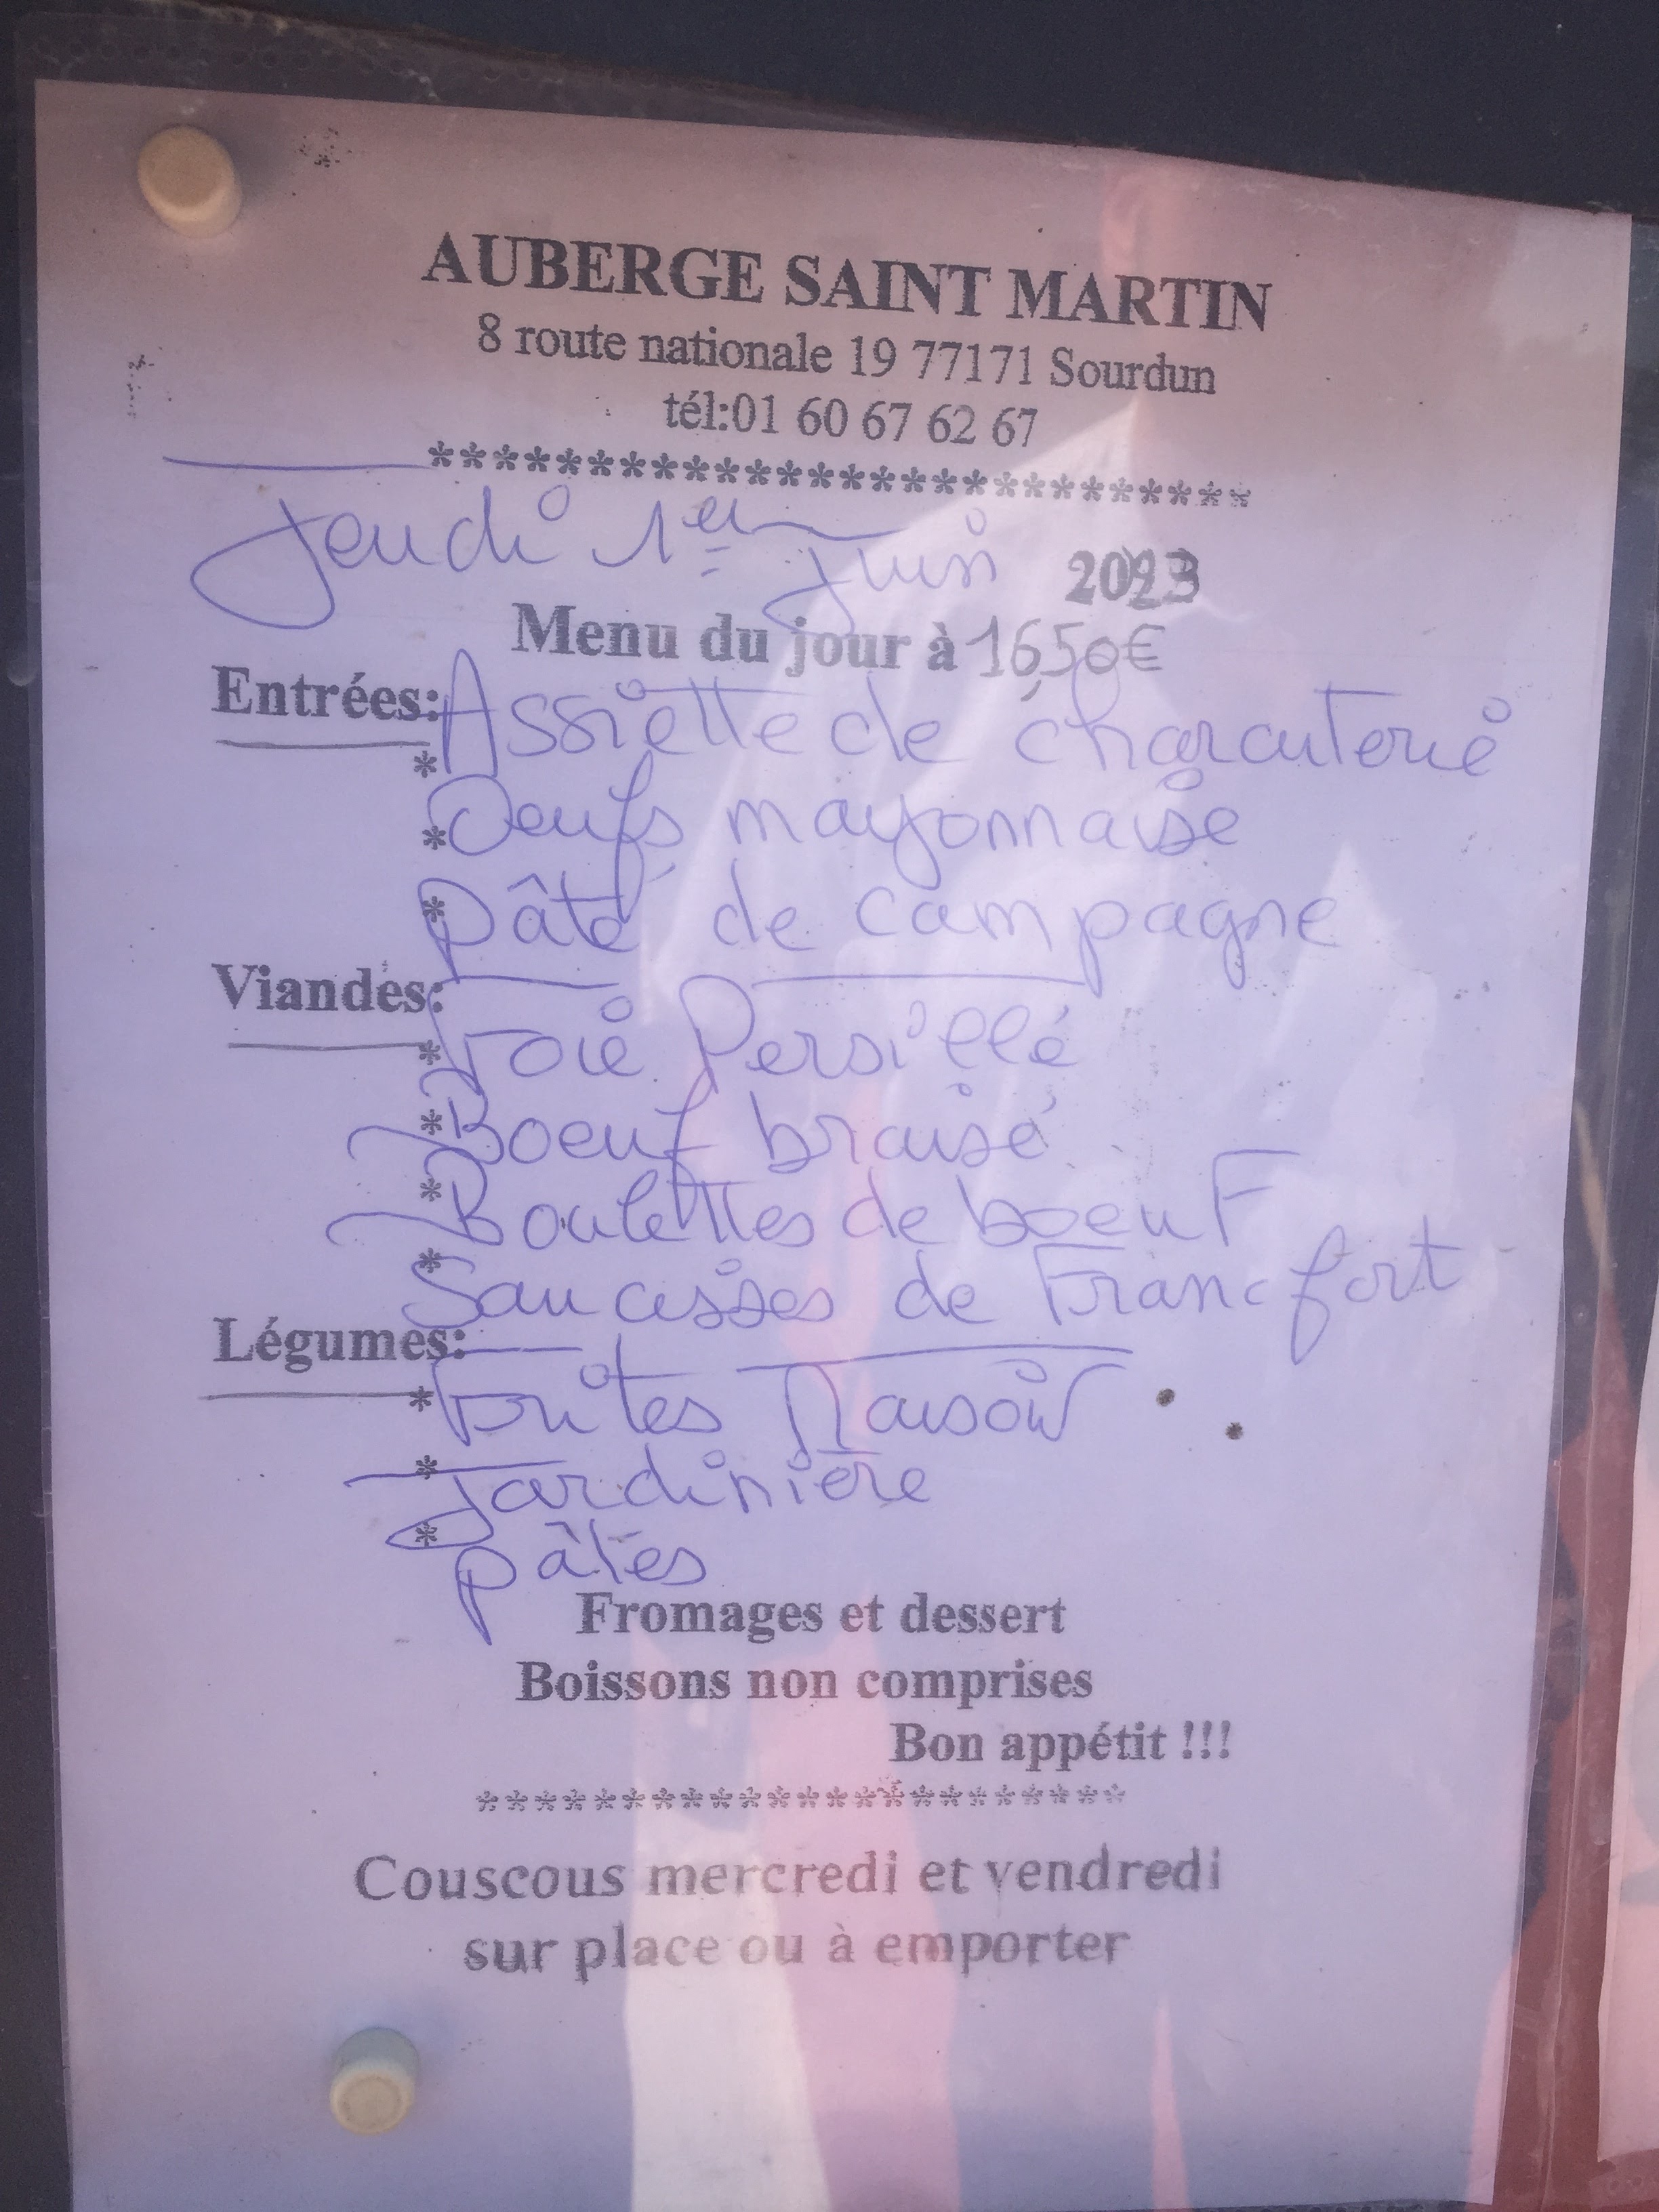 AUBERGE SAINT MARTIN
8 route nationale 19 77171 Sourdun
tél:01 60 67 62 67
**************************
Jeudi 1er Juin 2023
Menu du jour à 16,50€
Entrées: Assiette de charcuterie
* Oeufs mayonnaise
* Pâté de campagne
*
Viandes: Foie Persillé
* Boeuf braisé
* Boulettes de boeuf
* Saucisses de Francfort
*
Légumes: Frites Maison
* Jardinière
* pâtes
*
Fromages et dessert
Boissons non comprises
Bon appétit !!!
***********************
Couscous mercredi et vendredi
sur place ou à emporter